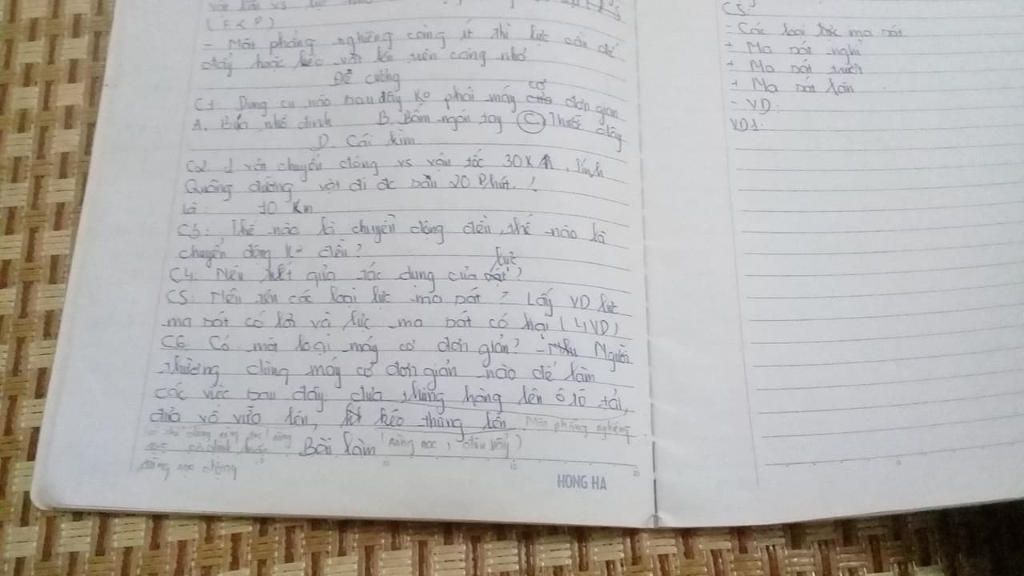 ( F < P )
- Mặt phẳng nghiêng càng ít thì lực cần để
đẩy hoặc kéo vật lên càng nhỏ
Đề cương
cơ
C1. Dụng cụ nào sau đây ko phải máy đơn giản
A. Búa nhổ đinh B. Bấm móng tay C Thước dây
D. Cái kìm
C2 1 vật chuyển động vs vận tốc 30 Tính
Quãng đường vật đi đc sau 20 Phút.
là: 10 Km
C3: Thế nào là chuyển động đều, thế nào là
chuyển động ko đều?
lực
C4. Nêu kết quả tác dụng của ?
C5: Nêu tên các loại lực ma sát ? Lấy VD lực
ma sát có lợi và lực ma sát có hại (4VD)
C6. Có mấy loại máy cơ đơn giản? - Người
thường dùng máy cơ đơn giản nào để làm
các việc sau đây đưa thùng hàng lên ô tô tải,
đưa vô vữa lên, kéo thùng lên Mặt phẳng nghiêng
Bài làm
ròng rọc động
HONG HA
C5:
- Các loại lực ma sát
+ Ma sát nghỉ
+ Ma sát trượt
+ Ma sát lăn
- VD
VD1: